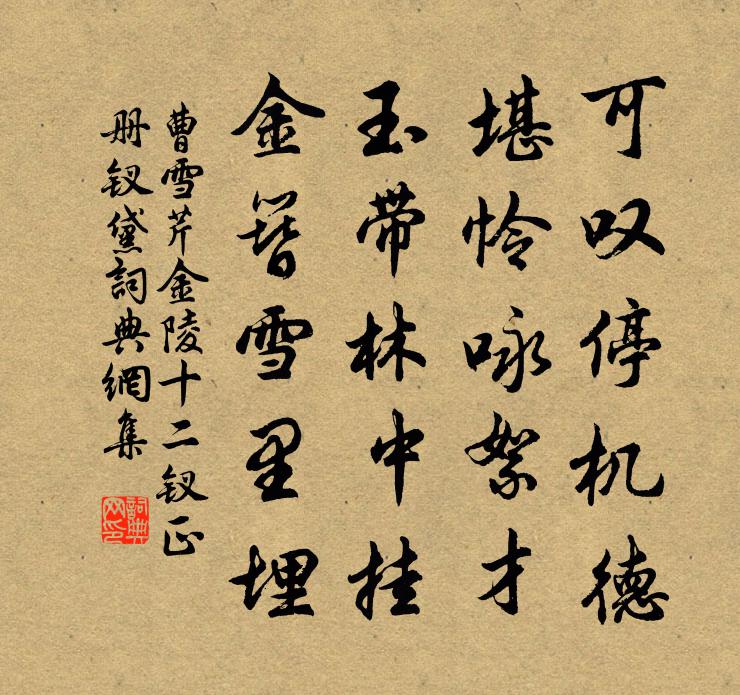 可叹停机德
堪怜咏絮才
玉带林中挂
金簪雪里埋
曹雪芹金陵十二钗正
册钗黛詞典網集
詞典网印